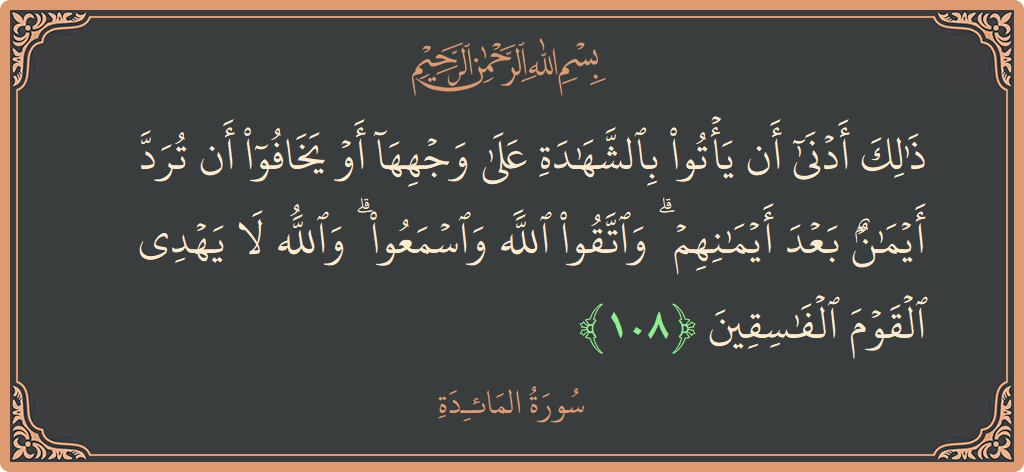 بِسْمِ اللهِ الرَّحْمٰنِ الرَّحِيْمِ
ذَٰلِكَ أَدۡنَىٰٓ أَن يَأۡتُواْ بِٱلشَّهَٰدَةِ عَلَىٰ وَجۡهِهَآ أَوۡ يَخَافُوٓاْ أَن تُرَدَّ
أَيۡمَٰنُۢ بَعۡدَ أَيۡمَٰنِهِمۡۗ وَٱتَّقُواْ ٱللَّهَ وَٱسۡمَعُواْۗ وَٱللَّهُ لَا يَهۡدِي
ٱلۡقَوۡمَ ٱلۡفَٰسِقِينَ ﴿١٠٨﴾
سُورَةُ المَائـِدَةِ